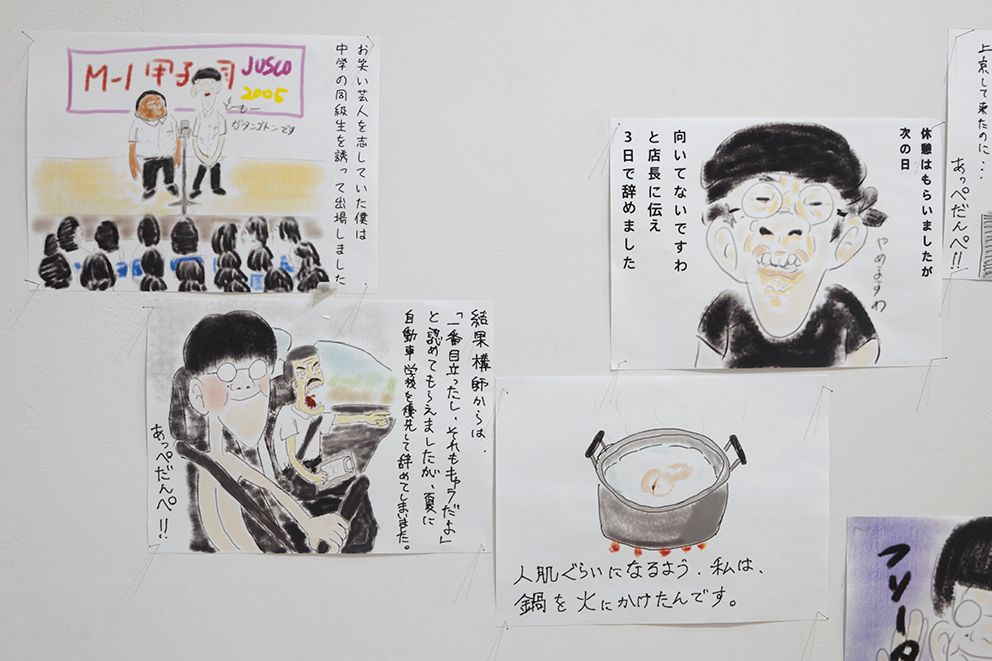 お笑い芸人を志していた僕は
中学の同級生を誘って出場しました
M-1 甲子園
JUSCO
2005
どーもー
ガタンゴトンです
結果講師からは、
「一番目立ったし、それもキャラだよ」
と認めてもらえましたが、夏に
自動車学校を優先して辞めてしまいました。
あっぺだんぺ!!
休憩はもらいましたが
次の日
向いてないですわ
と店長に伝え
3日で辞めました
やめますわ
人肌ぐらいになるよう、私は、
鍋を火にかけたんです。
上京して来たのに...
あっぺだんぺ!!
フリータ